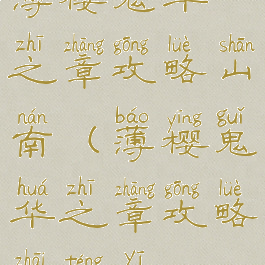 zhī zhāng gōng luè shān
之章攻略山
nán báo yīng guǐ
南(薄樱鬼
huá zhī zhāng gōng luè
华之章攻略
zhāi téng yī